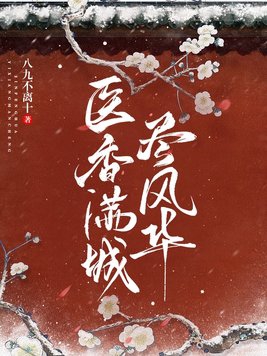 八九不离十 著
YIXIANGMANCHENG
JINFENGHUA
医香满城
尽风华